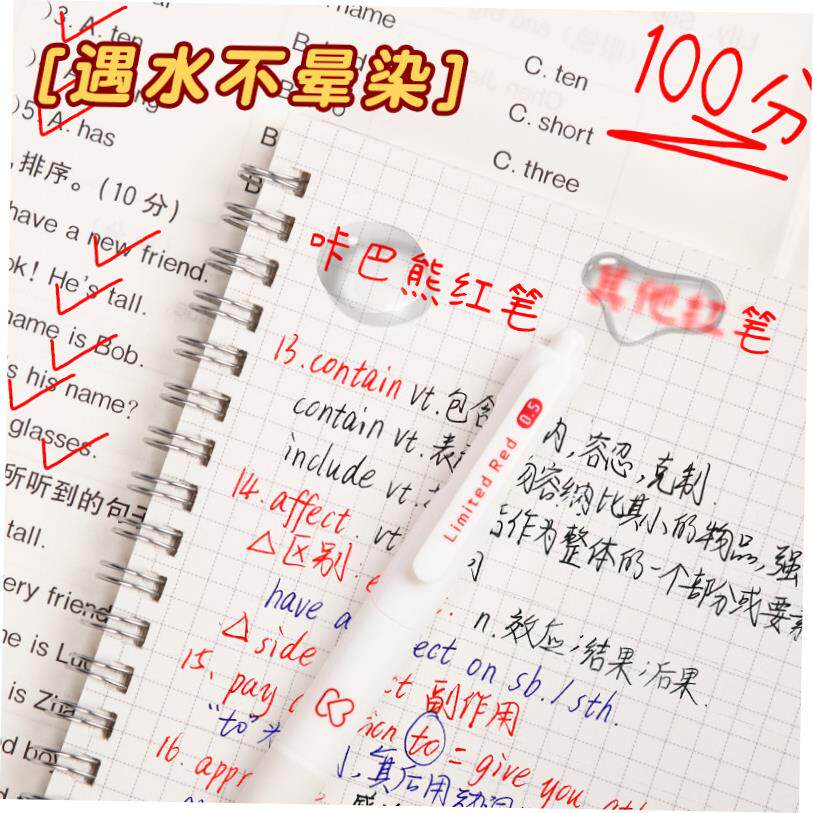 [遇水不晕染]
100分
3. A. ten
C. ten
5. A. has
C. short
C. three
name
排序。(10分)
have a new friend.
ok! He's tall.
name is Bob.
s his name?
glasses.
所听到的句子
tall.
ery friend
ne is Lu
is Zha
d boy
咔巴熊红笔
其他红笔
Limited Red 0.5
13. contain vt. 包含 内,容忍,克制.
contain vt. 表 容纳比其小的物品,强
include vt. 作为整体的一个部分或要素
14. affect vt
△区别: e n. 效应;结果;后果.
have a ect on sb./sth.
△side ct 副作用
15. pay ion to = give you
"to" 其后用动词
16. appr